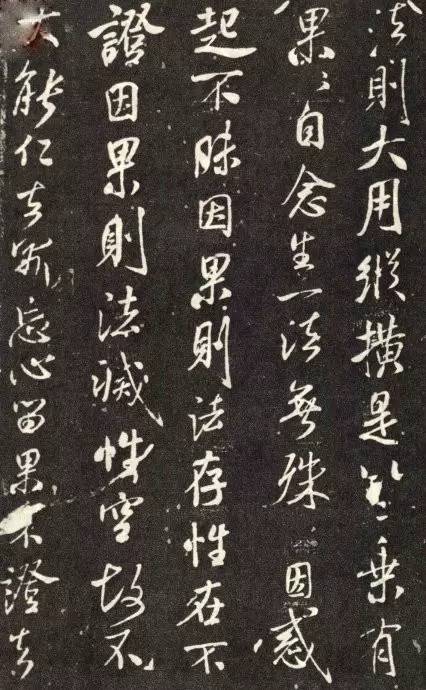 法則大用縱橫是以二乘有
果〻自念生一法無殊因感
起不昧因果則法存性在不
證因果則法滅性空故不
大能仁者斷忘心留果不證者